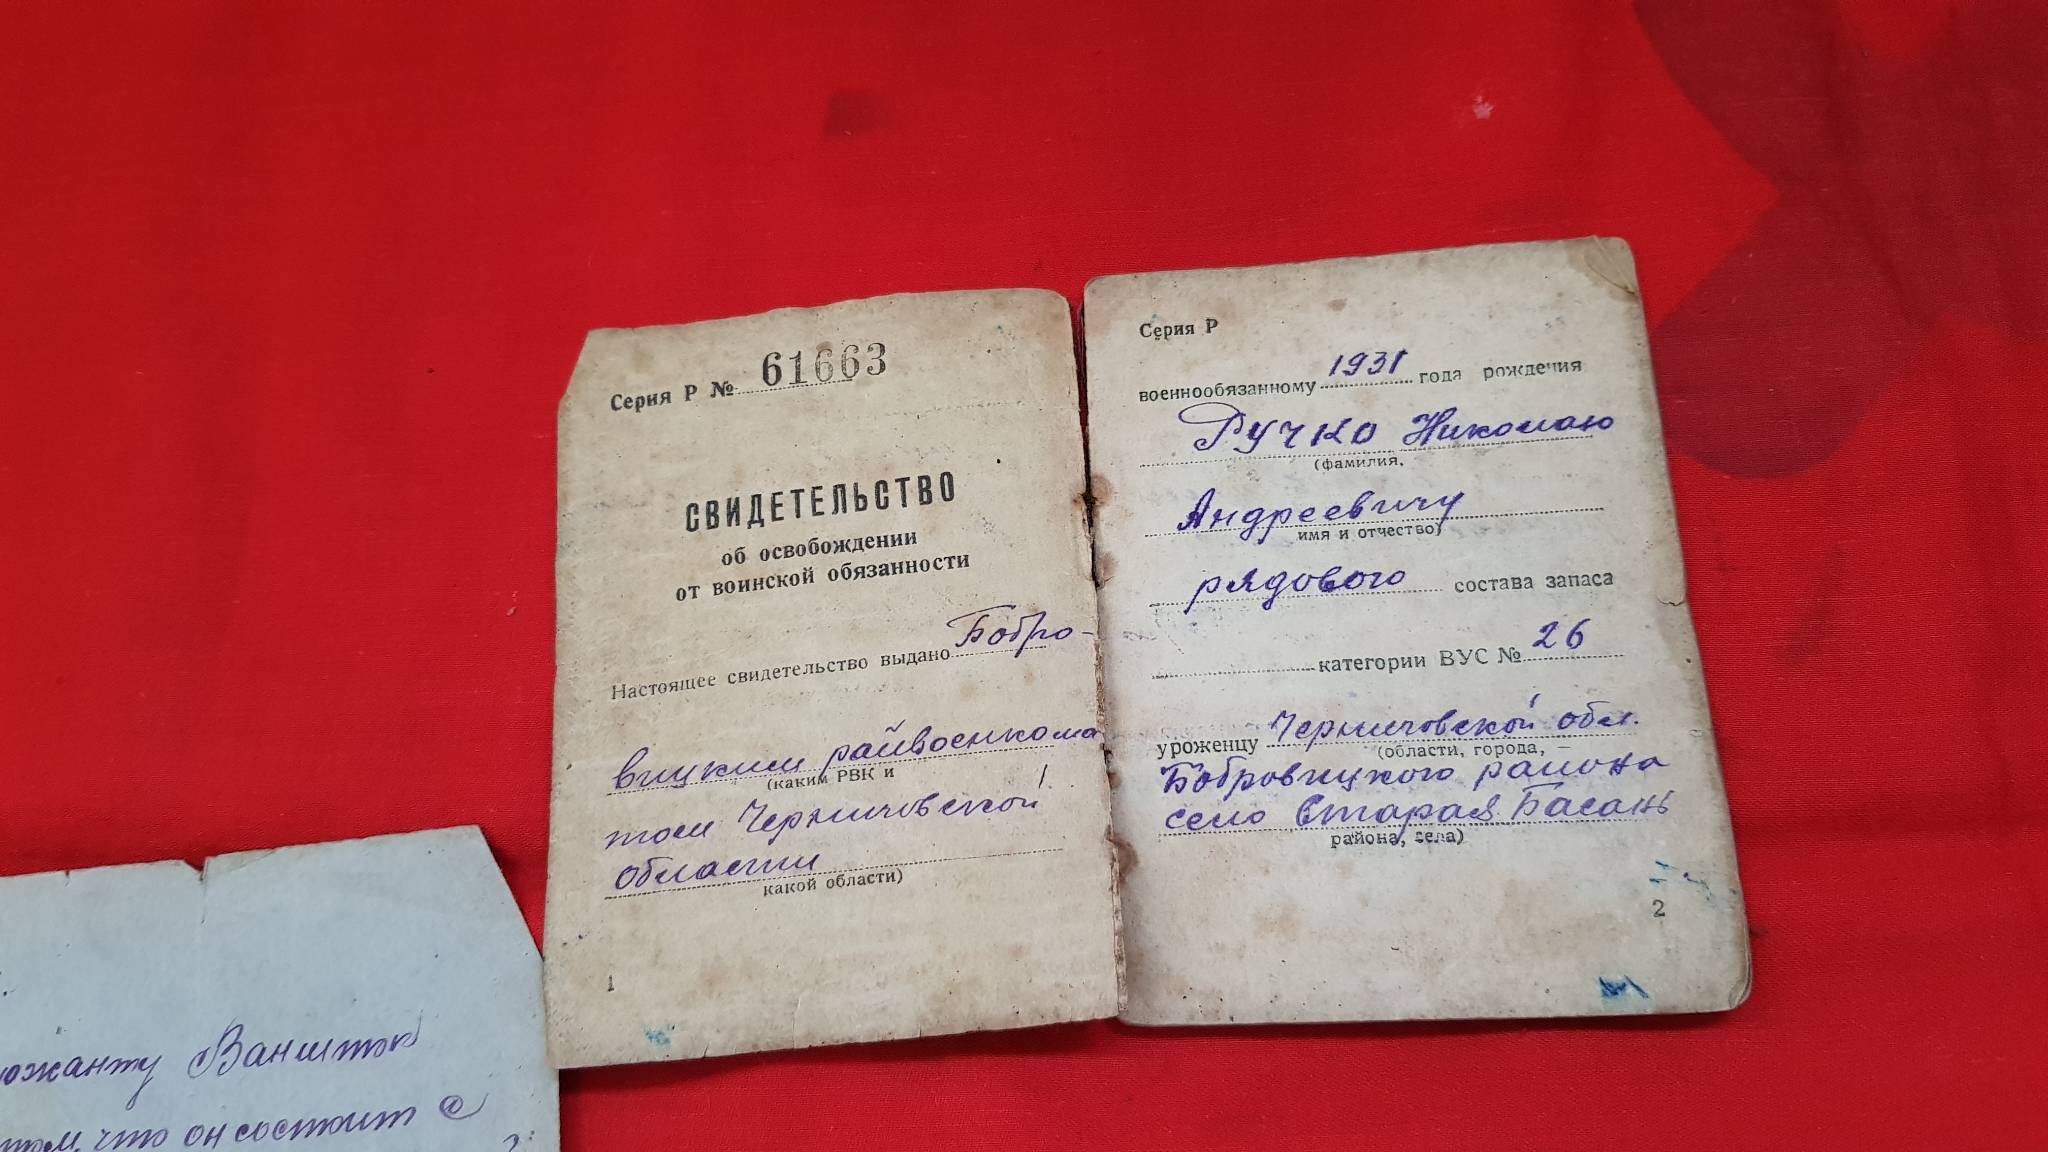 Серия Р № 61663
СВИДЕТЕЛЬСТВО
об освобождении
от воинской обязанности
Настоящее свидетельство выдано Бобро-
вицким райвоенкома
(каким РВК и
том Черниговской
области
какой области)
1
Серия Р
военнообязанному 1931 года рождения
Ручко Николаю
(фамилия,
Андреевичу
имя и отчество)
рядового состава запаса
категории ВУС № 26
уроженцу Черниговской обл.
(области, города, —
Бобровицкого района
село Старая Басань
района, села)
2
Ваншток
что он состоит